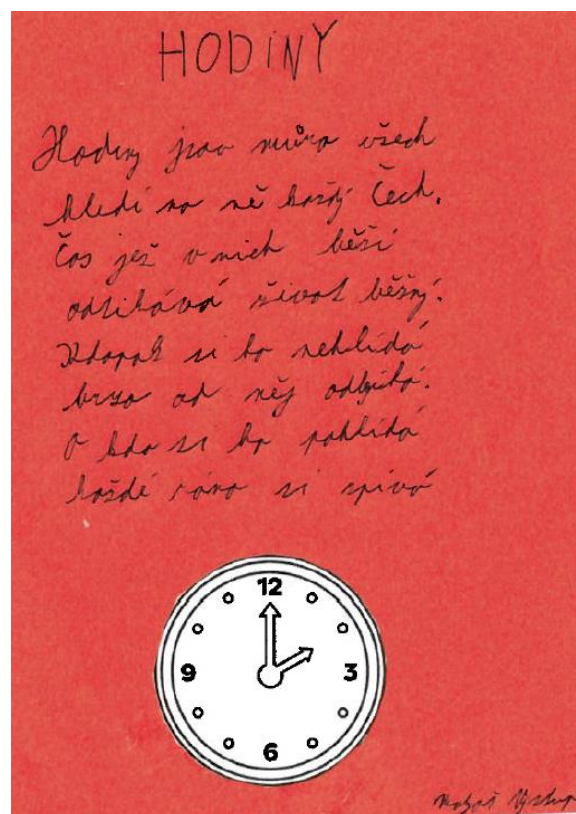 HODINY
Hodiny jsou můra všech
hledí na ně každý Čech.
Čas jež v nich běží
odtikává život běžný.
Kdopak si ho nehlídá
brzo od něj odbyta.
A kdo si ho pohlídá
každé ráno si zpívá
12
9 3
6
Matyáš